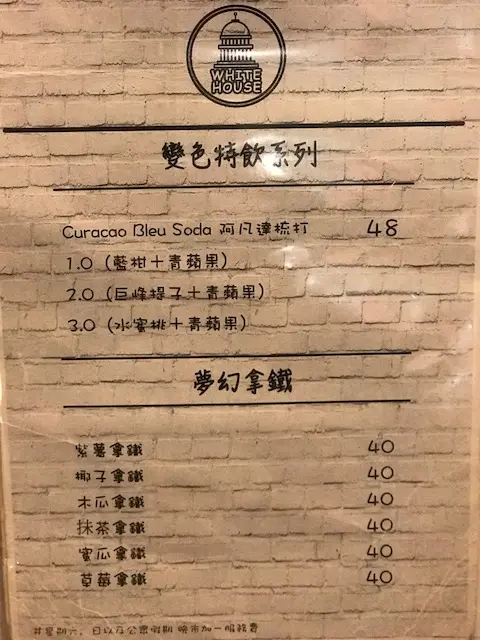 WHITE
HOUSE
變色特飲系列
Curacao Bleu Soda 阿凡達梳打 48
1.0 (藍柑+青蘋果)
2.0 (巨峰提子+青蘋果)
3.0 (水蜜桃+青蘋果)
夢幻拿鐵
紫薯拿鐵 40
椰子拿鐵 40
木瓜拿鐵 40
抹茶拿鐵 40
蜜瓜拿鐵 40
草莓拿鐵 40
#星期六、日以及公眾假期 晚市加一服務費